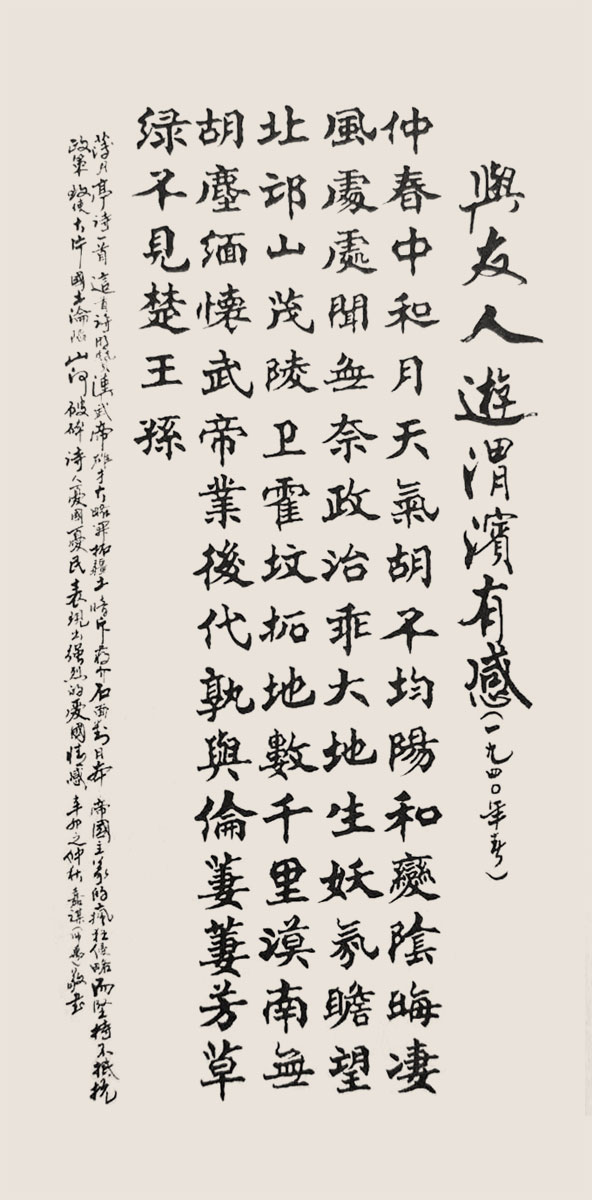 與友人遊渭濱有感(一九四〇年春)
仲春中和月天氣胡不均陽和變陰晦凄
風處處聞無奈政治乖大地生妖氛瞻望
北邙山茂陵卫霍坟拓地數千里漠南無
胡塵緬懷武帝業後代孰與倫萋萋芳草
绿不見楚王孫
薄月亭诗一首 這首诗漢武帝雄才大略開拓疆土暗斥蔣介石面對日本帝國主义的瘋狂侵略而坚持不抵抗
政策致使大片國土淪陷山河破碎诗人憂國憂民表現出强烈的愛國情感 辛卯之仲秋 嘉謀敬书